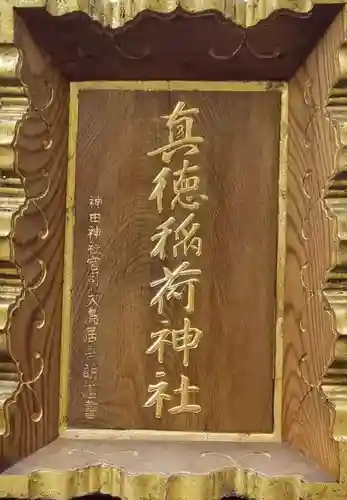 真徳稲荷神社
神田神社宮司大鳥居書